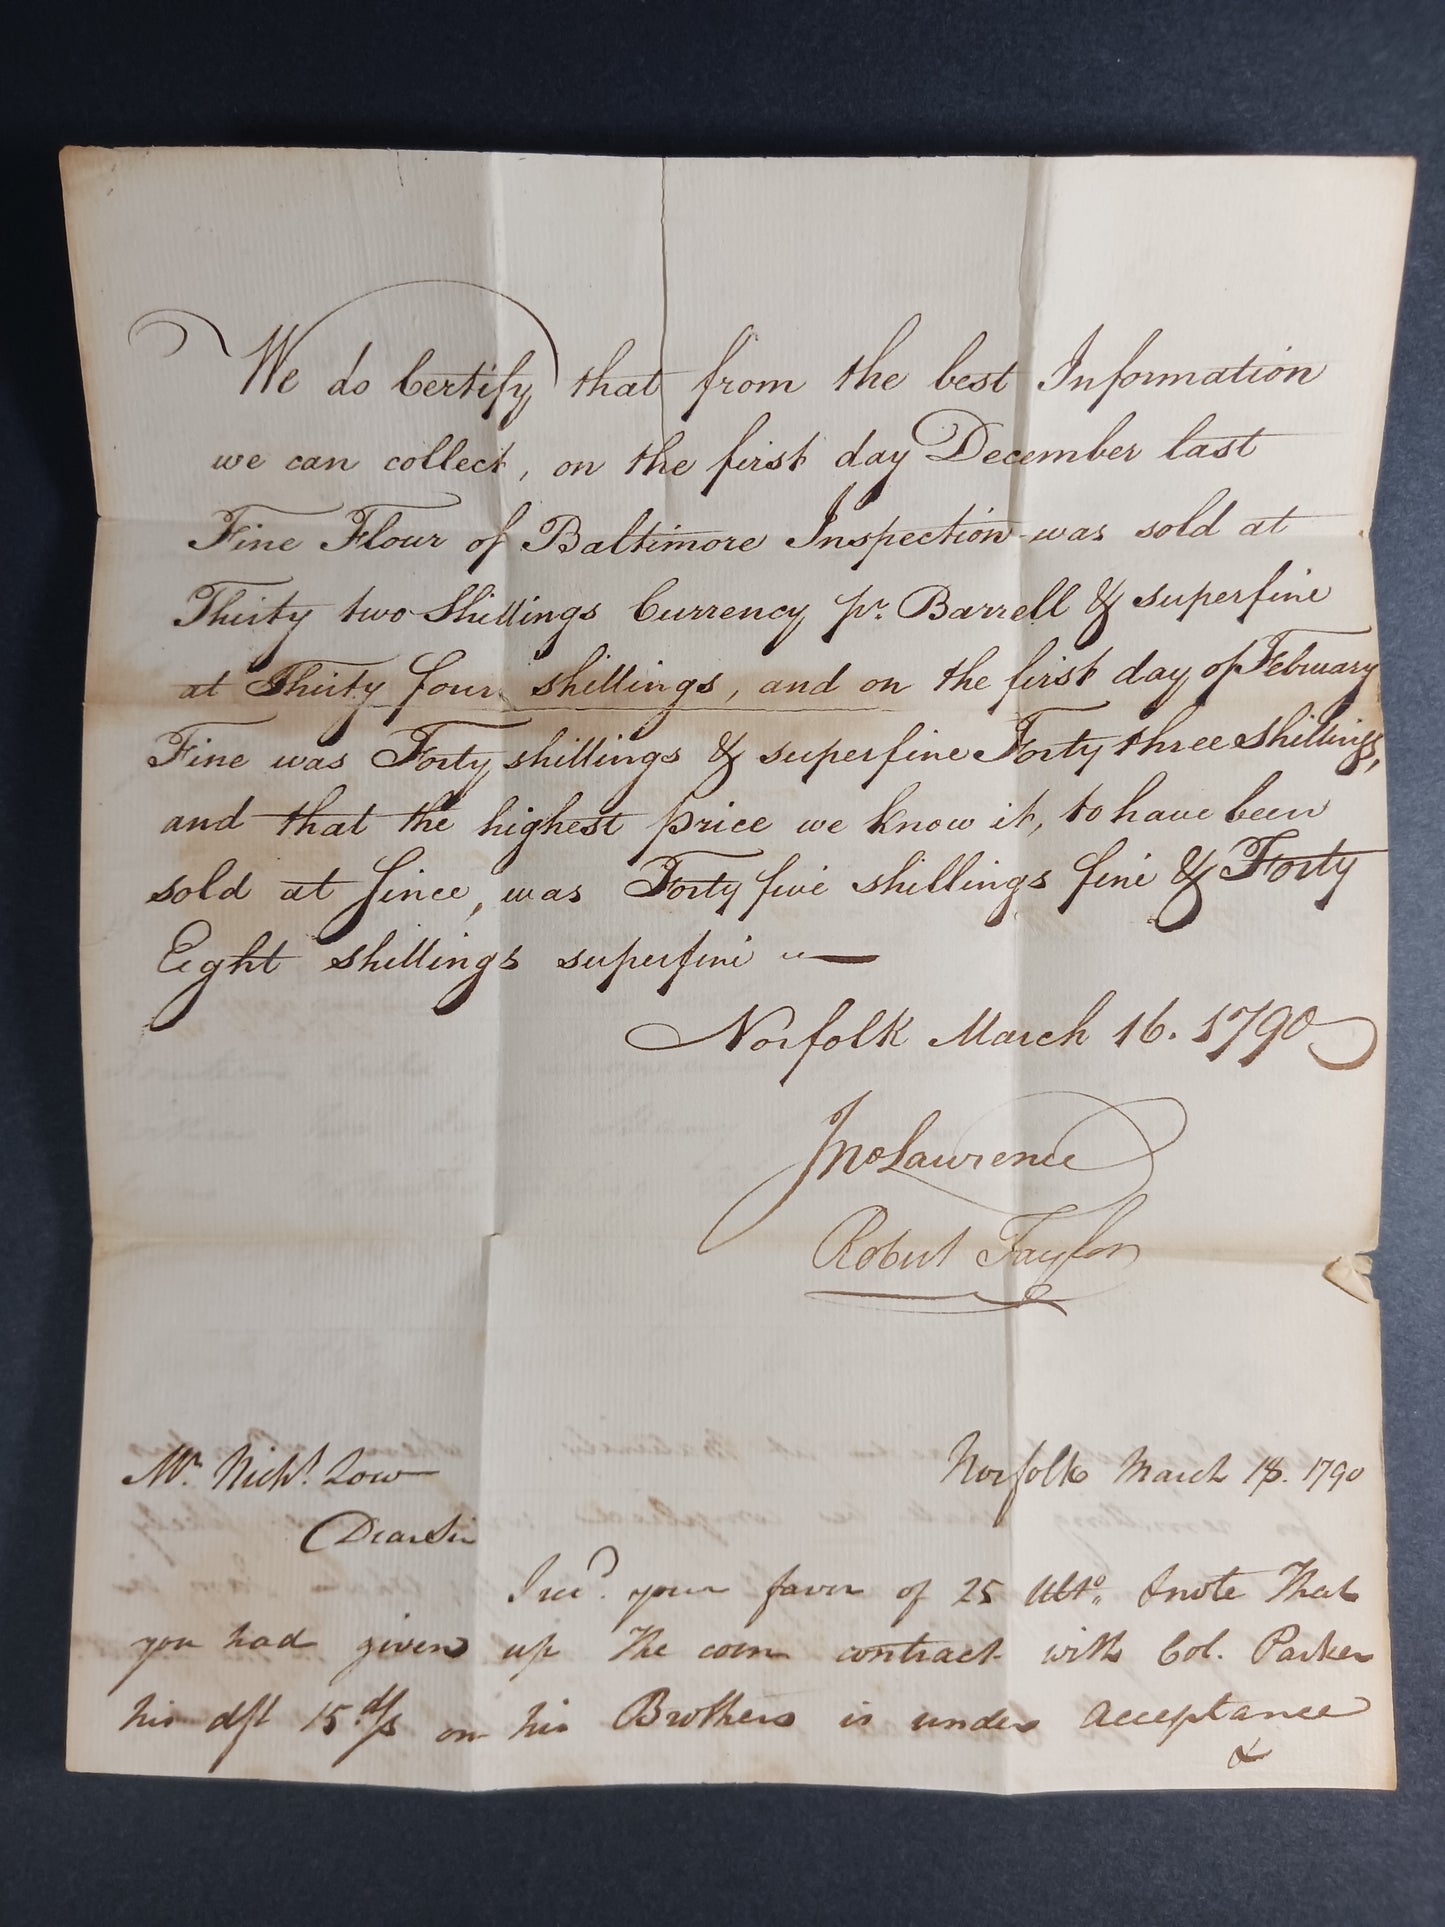 We do Certify that from the best Information
we can collect, on the first day December last
Fine Flour of Baltimore Inspection was sold at
Thirty two Shillings Currency pr. Barrell & superfine
at Thirty four shillings, and on the first day of February
Fine was Forty shillings & superfine Forty three shillings,
and that the highest price we know it, to have been
sold at since, was Forty five shillings fine & Forty
Eight shillings superfine
Norfolk March 16. 1790
Jno Lawrence
Robert Taylor
Mr. Nichs. Low
Norfolk March 18. 1790
Dear Sir
I recd. your favor of 25 Ulto. & note That
you had given up The corn contract with Col. Parker
his dft 15 d/s on his Brothers is under acceptance
&